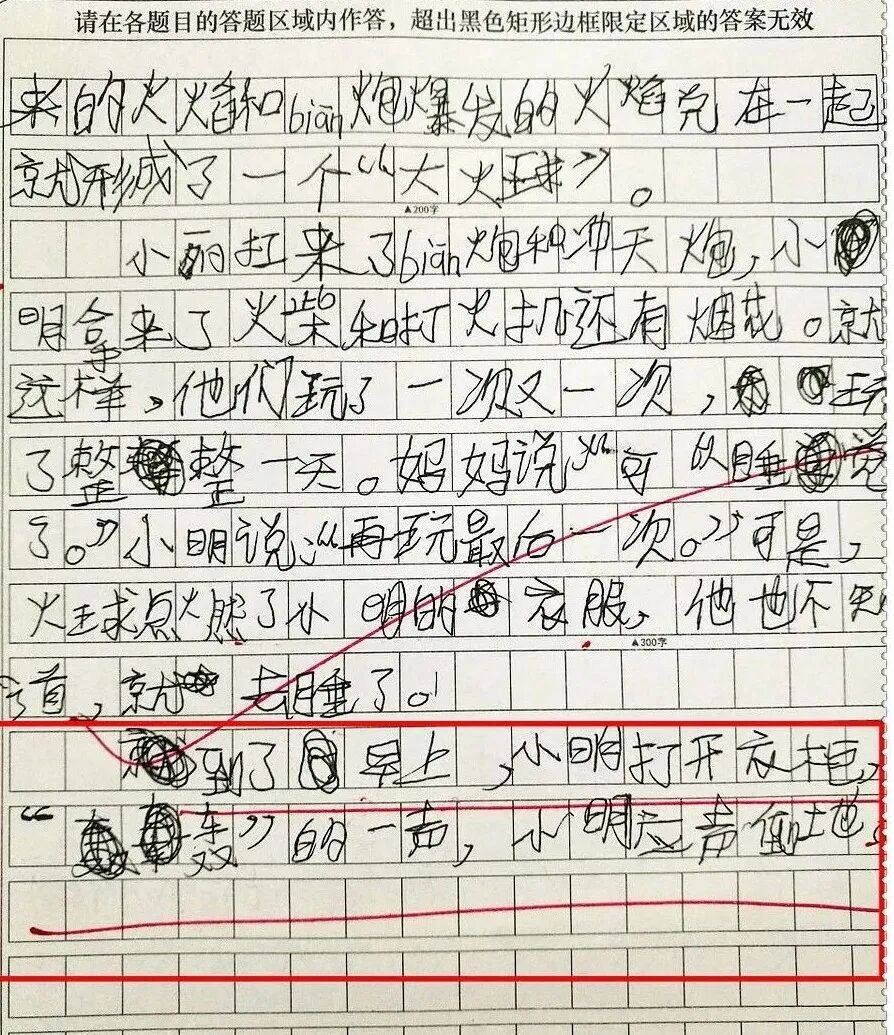 请在各题目的答题区域内作答，超出黑色矩形边框限定区域的答案无效
来的火焰和biān炮爆发的火焰克在一起
就形成了一个“大火球”。
▲200字
小丽扛来了biān炮和冲天炮，小
明拿来了火柴和打火机还有烟花。就
这样，他们玩了一次又一次，玩
了整整一天。妈妈说：“可以睡觉
了。”小明说：“再玩最后一次。”可是，
火球点燃了小明的衣服，他也不知
▲300字
道，就去睡了。
到了早上，小明打开衣柜，
“轰”的一声，小明应声倒地。